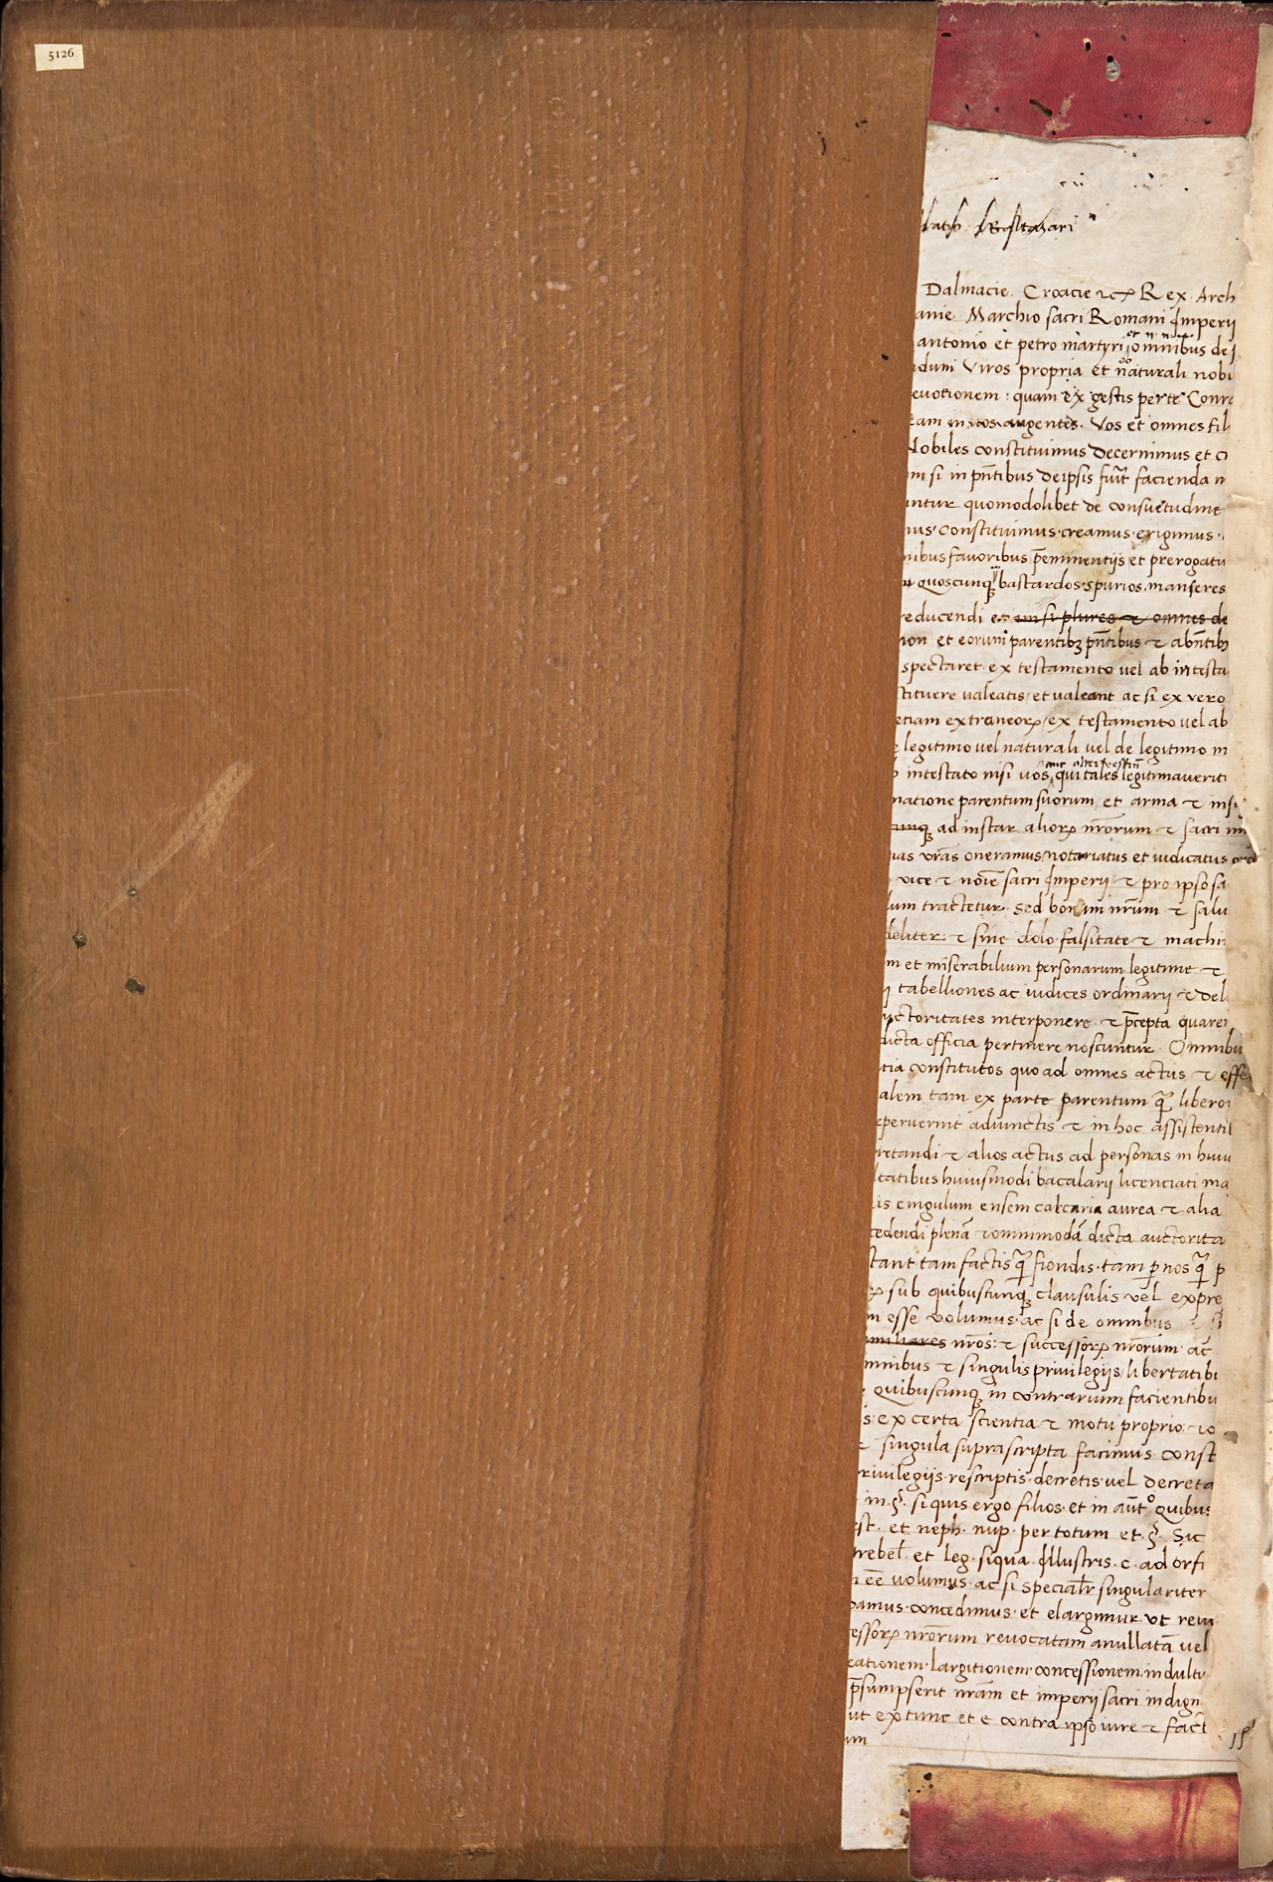 5126
Dalmacie. Croacie ⁊c Rex. Arch
anie Marchio sacri Romani Imperij
antonio et petro martyri omnibus de
dum Viros propria et naturali nobi
evotionem: quam ex gestis per te Conr
eam in vos augentes. Vos et omnes fil
Nobiles constituimus decernimus et c
m si in pñtibus de ipsis fuĩt facienda n
untur quomodolibet de consuetudine
mus Constituimus creamus erigimus
nibus favoribus p̃eminentijs et prerogati
quoscunqꝫ bastardos spurios manseres
reducendi et si plures ⁊ omnes de
ion et eorum parentibꝫ pñtibus ⁊ abñtibꝫ
spectaret ex testamento vel ab intesta
tituere valeatis et valeant ac si ex vero
etiam extraneoꝝ ex testamento vel ab
e legitimo vel naturali vel de legitimo m
intestato nisi vos qui tales legitimaverit
natione parentum suorum et arma ⁊ insi
cunqꝫ ad instar alioꝝ nr̃orum ⁊ sacri im
ias vr̃as oneramus notariatus et iudicatus
vice ⁊ noĩe sacri Imperij ⁊ pro ipso sa
lum tractetur. Sed bonum nr̃um ⁊ salu
deliter ⁊ sine dolo falsitate ⁊ machi
m et miserabilium personarum legitime ⁊
j tabelliones ac iudices ordinarij ⁊ del
uctoritates interponere ⁊ p̃cepta quare
dicta officia pertinere noscuntur. Omnibu
tia constitutos quo ad omnes actus ⁊ effe
alem tam ex parte parentum q̃ libero
pervenit adiunctis ⁊ in hoc assistenti
retandi ⁊ alios actus ad personas in huiu
ltatibus huiusmodi bacalarij licenciati ma
is cingulum ensem calcaria aurea ⁊ alia
cedendi plenã ⁊ omnimodã dicta auctorita
tant tam factis q̃ fiendis tam ꝑ nos q̃ p
ꝝ sub quibuscunqꝫ clausulis vel expre
m esse volumus ac si de omnibus ⁊ si
miliares nr̃os: ⁊ successoꝝ nr̃orum ac
mnibus ⁊ singulis privilegijs libertatibu
quibuscunqꝫ in contrarium facientibu
s ex certa scientia ⁊ motu proprio
⁊ singula suprascripta facimus const
rivilegijs rescriptis decretis vel decreta
in §. si quis ergo filios et in aũt° Quibus
st. et neph. nup. per totum et §. Sic
trebel̃. et leg. siqua. Illustris. c. ad orfi
ẽe volumus ac si specialr̃ singulariter
amus concedimus et elargimur ut rem
essoꝝ nr̃orum revocatam anullatã vel
eationem largitionem concessionem indultu
p̃sumpserit nr̃am et imperij sacri indign
ut ex tunc et e contra ipso iure ⁊ fact
um